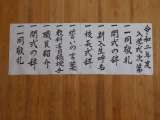 令和二年度
入学式次第
一 同敬礼
一 開式の辞
一 新入生呼名
一 校長式辞
一 誓いの言葉
一 教科書授与
一 職員紹介
一 閉式の辞
一 同敬礼